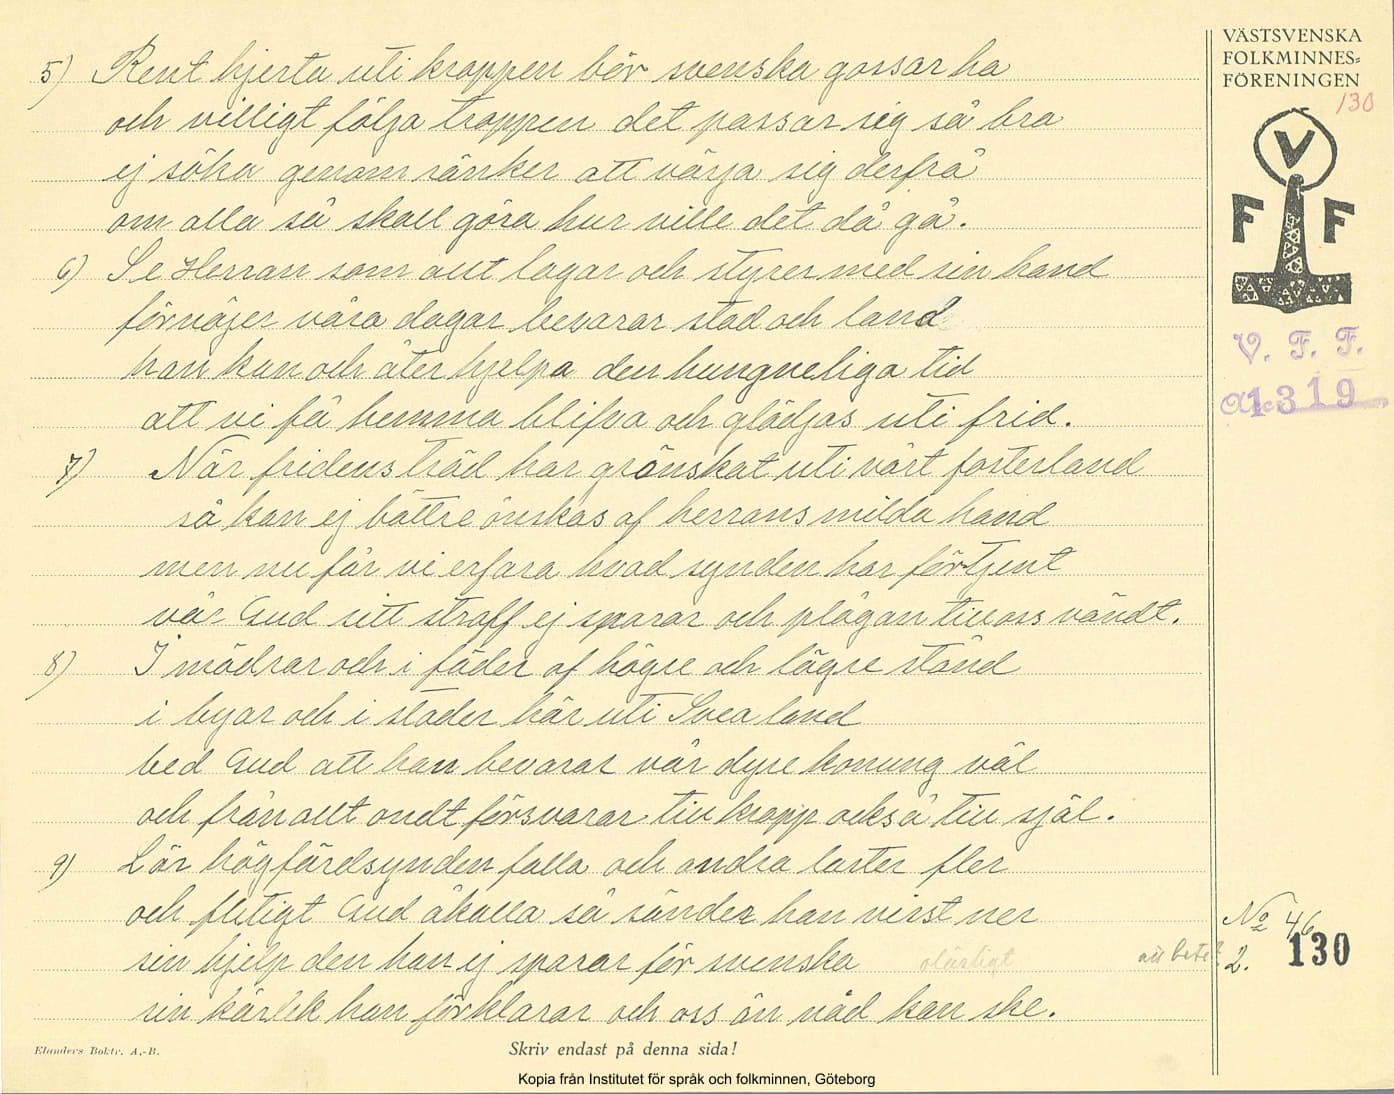 VÄSTSVENSKA
FOLKMINNES=
FÖRENINGEN
130
V
F F
V. F. F.
1319
5) Rent hjerta uti kroppen bör svenska gossar ha
och villigt följa troppen det passar sig så bra
ej söka genom ränker att värja sig derfrå
om alla så skall göra hur ville det då gå.
6) Se Herran som allt lagar och styrer med sin hand
förnöjer våra dagar bevarar stad och land
han kan och åter hjelpa den hungneliga tid
att vi få hemma blifva och glädjas uti frid.
7) När fridens träd har grönskat uti vårt fosterland
så kan ej bättre önskas af herrans milda hand
men nu får vi erfara hvad synden har förtjent
vår Gud sitt straff ej sparar och plågan till oss vändt.
8) I mödrar och i fäder af högre och lägre stånd
i byar och i städer här uti Svea land
bed Gud att han bevarar vår dyre konung väl
och från allt ondt försvarar till kropp också till själ.
9) Lär högfärdsynden falla och andra laster fler
och flitigt Gud åkalla så sänder han visst ner
sin hjelp den han ej sparar för svenska olärligt
sin kärlek han förklarar och oss än nåd kan ske.
No 46
2. 130
Elanders Boktr. A.-B.
Skriv endast på denna sida!
Kopia från Institutet för språk och folkminnen, Göteborg